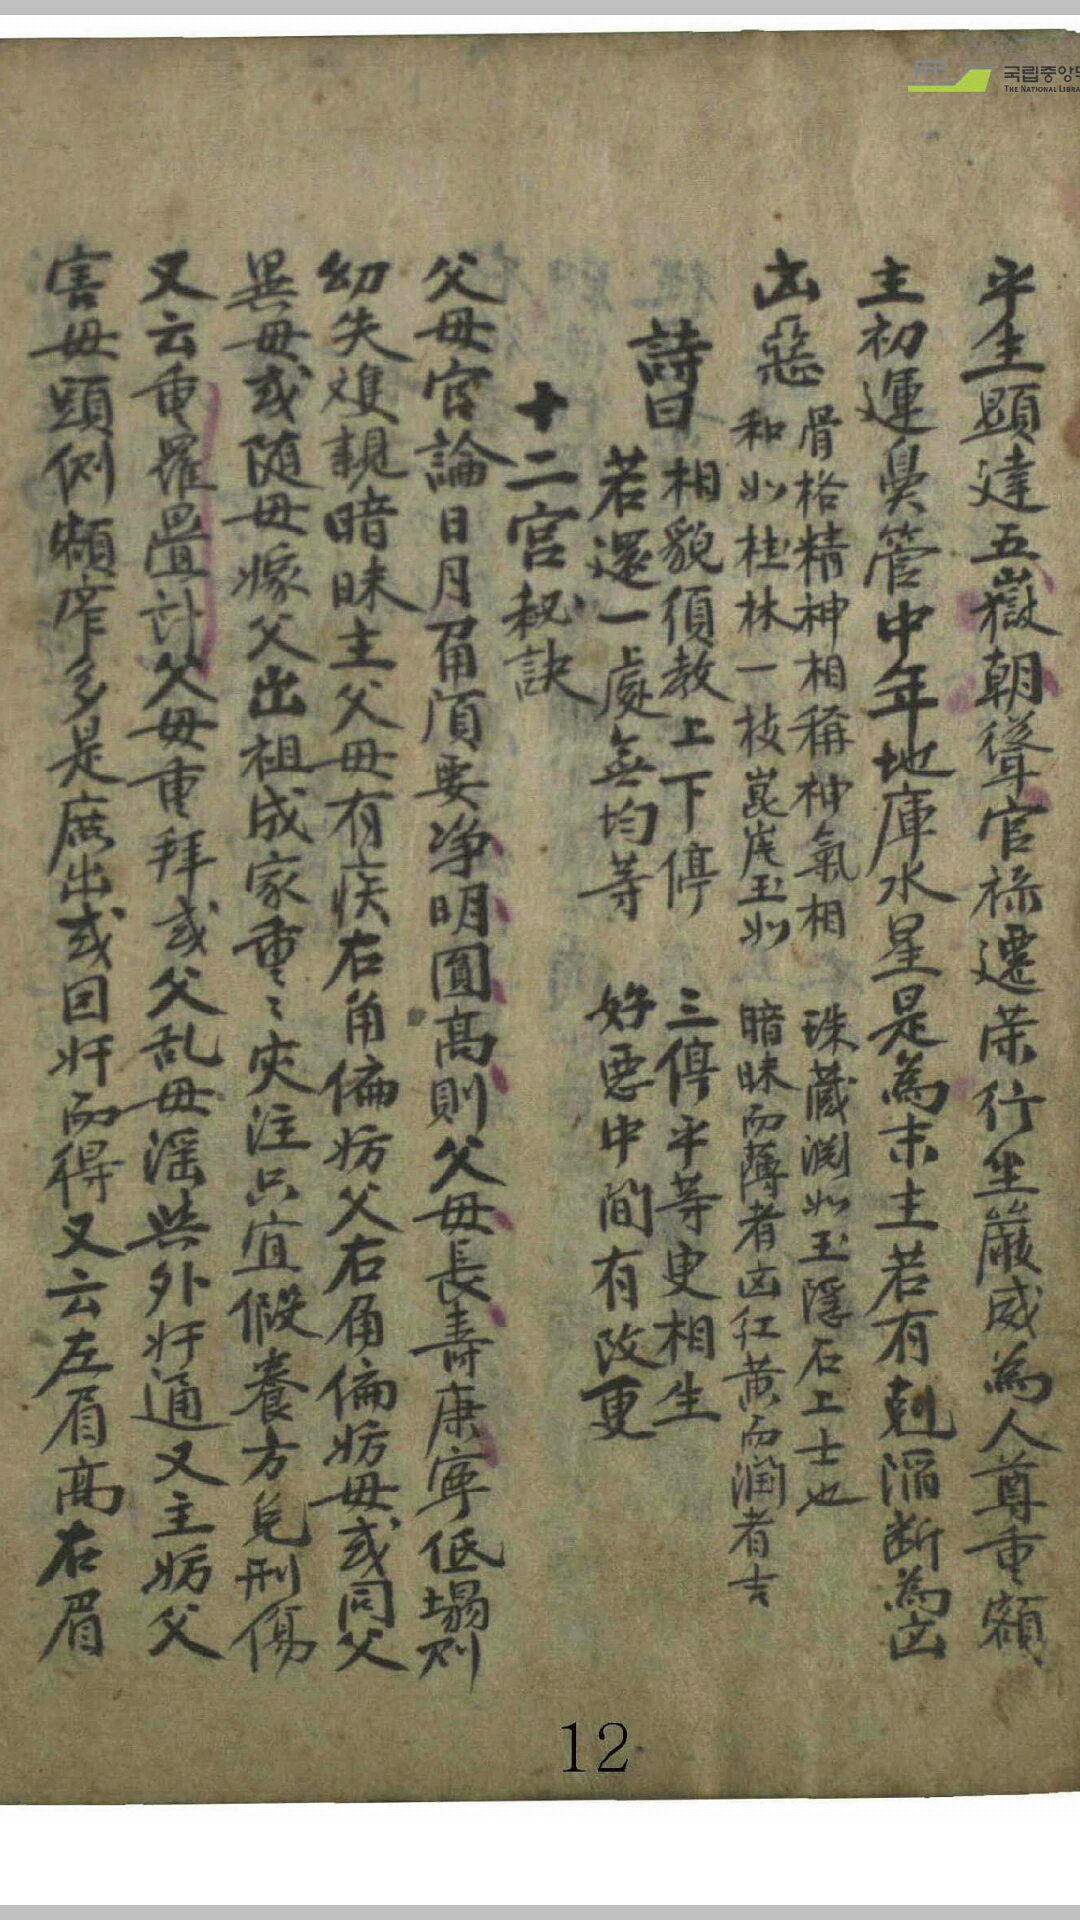 국립중앙도
THE NATIONAL LIBRA
平生顕達五嶽朝聳官祿遷荣行坐嚴威為人尊重額
主初運鼻管中年地庫水星是為末主若有尅陷断為凶
凶惡
骨格精神相稱神氣相 珠蔵淵如玉隠石上士也
和如桂林一枝崑崗玉如 暗昧而薄者凶红黄而潤者吉
詩曰
相貌須教上下停 三停平等更相生
若還一處無均等 好惡中间有改更
十二宫秘訣
父母宫論日月角湏要净明圓髙則父母長壽康寧低塌则
幼失雙親暗昧主父母有疾右角偏妨父右角偏妨母或同父
異母或随母嫁父出祖成家重〻灾注只宜假養方免刑傷
又云重羅疊計父母重拜或父乱母滛與外奸通又主妨父
害母頭側額窄多是庶出或因奸而得又云左眉髙右眉
12